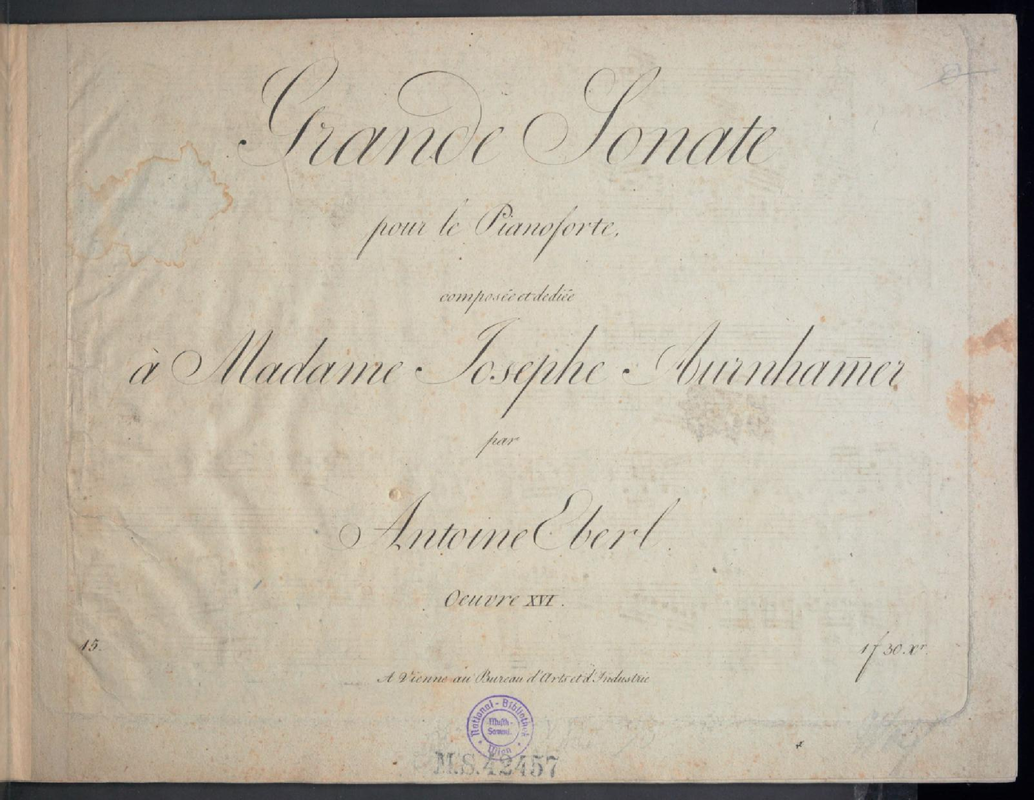 Grande Sonate
pour le Pianoforte,
composée et dediée
à Madame Josephe Aurnham̄er
par
Antoine Eberl.
Oeuvre XVI.
15.
1f 30.xr.
A Vienne au Bureau d'Arts et d'Industrie
National-Bibliothek
Musik-
Samml.
Wien
M.S.42457